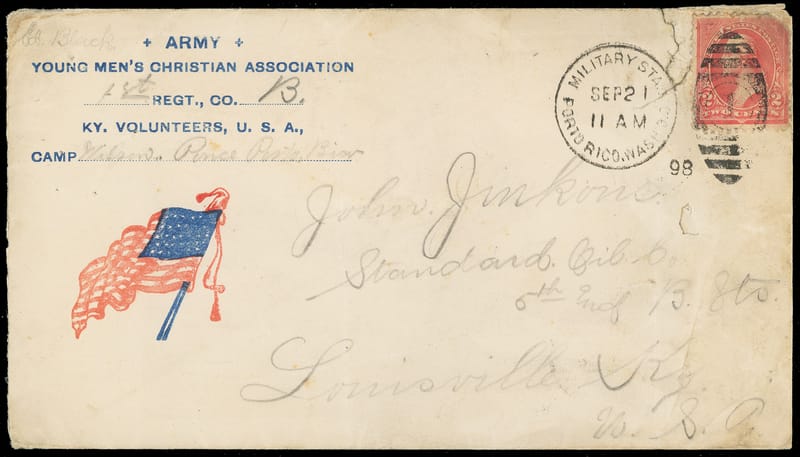 Ed. Black
+ ARMY +
YOUNG MEN'S CHRISTIAN ASSOCIATION
1st REGT., CO. B.
KY. VOLUNTEERS, U. S. A.,
CAMP Wilson. Ponce
MILITARY STA.
PORTO RICO, WASH. D.C.
SEP 21
11 AM
98
2 2
TWO CENTS
John. Jinkons.
Standard. Oil. Co.
5th and B. Sts.
Louisville Ky.
U. S. A.